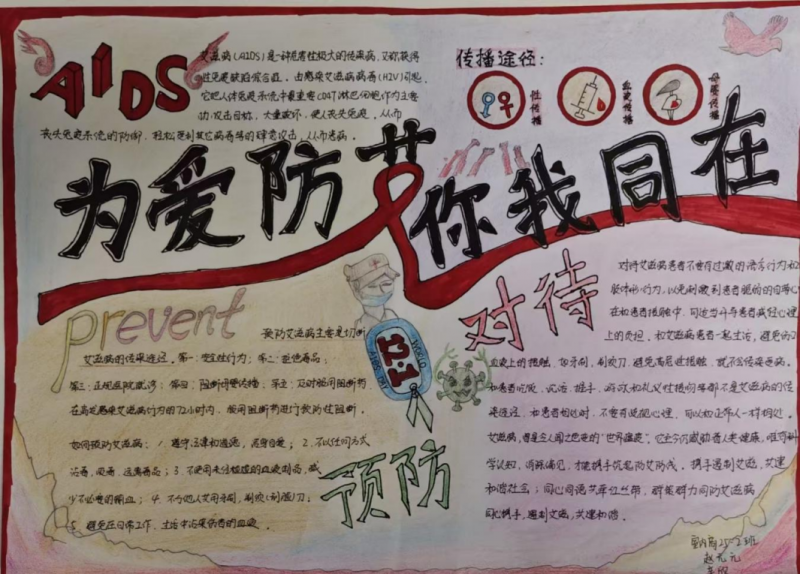 AIDS
艾滋病(AIDS)是一种危害性极大的传染病,又称获得
性免疫缺陷综合征。由感染艾滋病病毒(HIV)引起,
它把人体免疫系统中最重要CD4T淋巴细胞作为主要
攻击目标,大量破坏,使人丧失免疫。从而
丧失免疫系统的防御
传播途径:
性传播
血液传播
母婴传播
为爱防艾 你我同在
prevent
预防艾滋病主要是切断
艾滋病的传染途径。第一:安全性行为;第二:拒绝毒品;
第三:正规医院就诊;第四:阻断母婴传播;第五:及时服用阻断药
在高危感染艾滋病行为的72小时内,服用阻断药进行预防性阻断。
如何预防艾滋病:1.遵守法律和道德,洁身自爱;2.不以任何方式
吸毒;3.不使用未经检验的血液制品,减
少不必要的输血;4.不与他人共用牙刷,剃须(刮脸)刀;
5.避免在日常工作、生活中沾染伤者的血液。
WORLD
12·1
AIDS DAY
预防
对待
对待艾滋病患者不要有过激的语言行为和
肢体行为,以免刺激到患者脆弱的自尊心
在和患者接触中,可适当开导患者减轻心理
上的负担。和艾滋病患者一起生活,避免
血液上的接触,如牙刷,剃须刀,避免高危性接触,就不会传染疾病。
和患者吃饭、沉浴、握手、游戏和礼义性接吻等都不是艾滋病的传
染途径,和患者相处时,不要有提防心理,可以和正常人一样相处。
艾滋病,曾是令人闻之色变的"世界瘟疫",它至今仍威胁着人类健康,唯有科
学认知,消除偏见,才能携手筑起防艾防线。携手遏制艾滋,共建
和谐社会;同心同德
同心携手,遏制艾滋,共建和谐。
25-2班